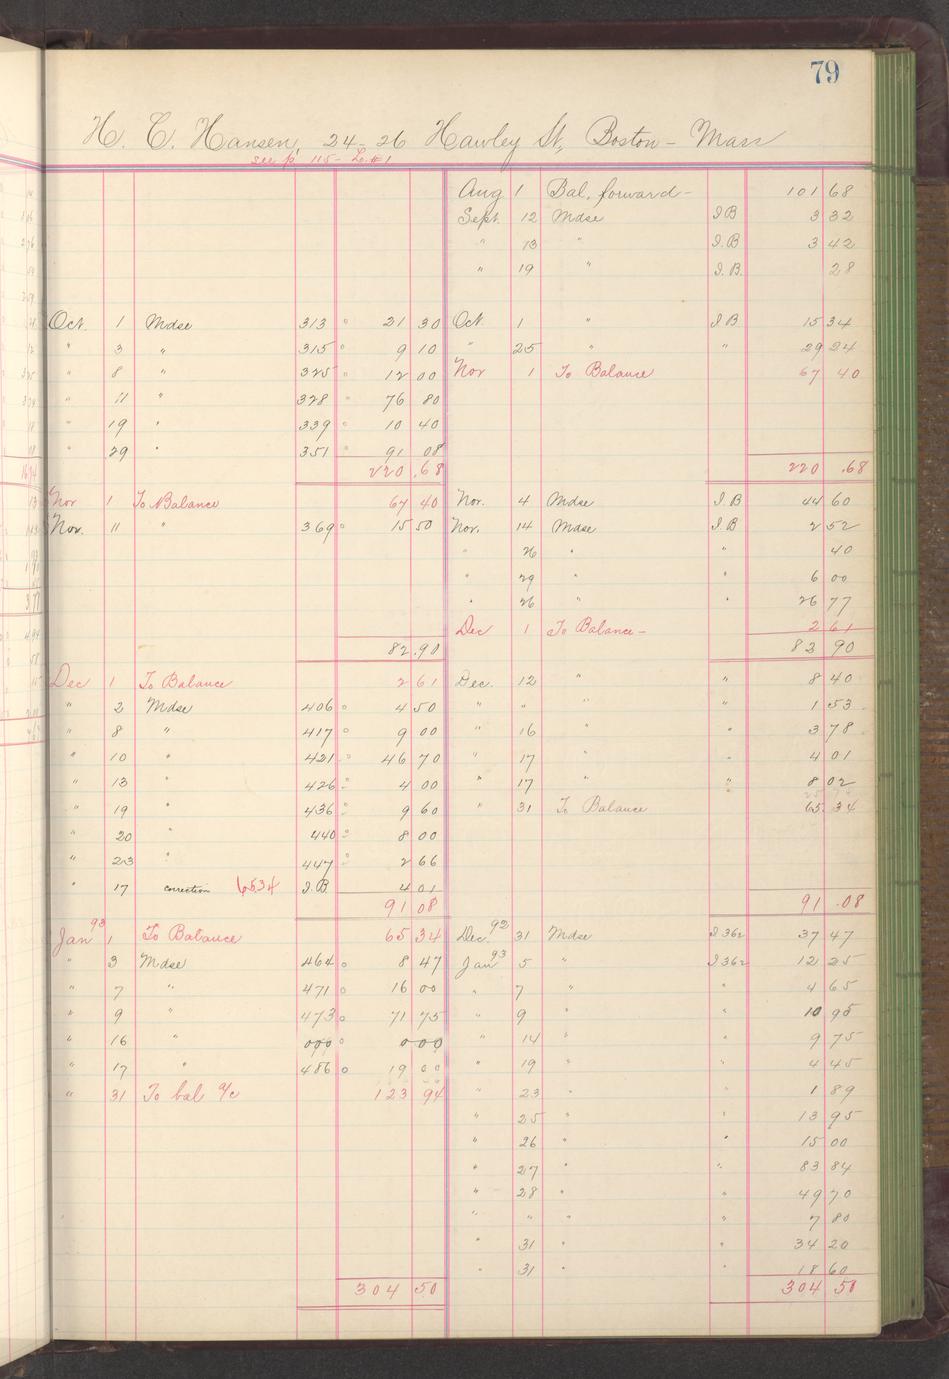 79
H. C. Hansen, 24-26 Hawley St, Boston - Mass
see p 115 -
Aug 1 Bal. forward - 101 68
Sept. 12 Mdse I B 3 32
" 13 " I. B 3 42
" 19 " I. B. 28
Oct. 1 Mdse 313 21 30 Oct. 1 " I B 15 34
" 3 " 315 9 10 " 25 " " 29 24
" 8 " 325 12 00 Nov 1 To Balance 67 40
" 11 " 328 76 80
" 19 " 339 10 40
" 29 " 351 91 08
220.68 220.68
Nov 1 To Balance 67 40 Nov. 4 Mdse I. B 44 60
Nov. 11 " 369 15 50 Nov. 14 Mdse I B 2 52
" 26 " " 40
" 29 " " 6 00
" 26 " " 26 77
Dec 1 To Balance - 2 61
82.90 82 90
Dec 1 To Balance 2 61 Dec. 12 " " 8 40
" 2 Mdse 406 4 50 " " " " 1 53
" 8 " 417 9 00 " 16 " " 3 78
" 10 " 421 46 70 " 17 " " 4 01
" 13 " 426 4 00 " 17 " " 8 02
" 19 " 436 9 60 " 31 To Balance 65.34
" 20 " 440 8 00
" 23 " 447 2 66
" 17 correction 65 34 I. B 4 01
91 08 91.08
Jan 93 1 To Balance 65 34 Dec. 92 31 Mdse I 362 37 47
" 3 Mdse 464 8 47 Jan 93 5 " I 362 12 25
" 7 " 471 16 00 " 7 " " 4 65
" 9 " 473 71 75 " 9 " " 10 95
" 16 " 000 0 00 " 14 " " 9 75
" 17 " 486 19 00 " 19 " " 4 45
" 31 To bal a/c 123 94 " 23 " " 1 89
" 25 " " 13 95
" 26 " " 15 00
" 27 " " 83 84
" 28 " " 49 70
" " " " 7 80
" 31 " " 34 20
" 31 " " 18 60
304 50 304 50